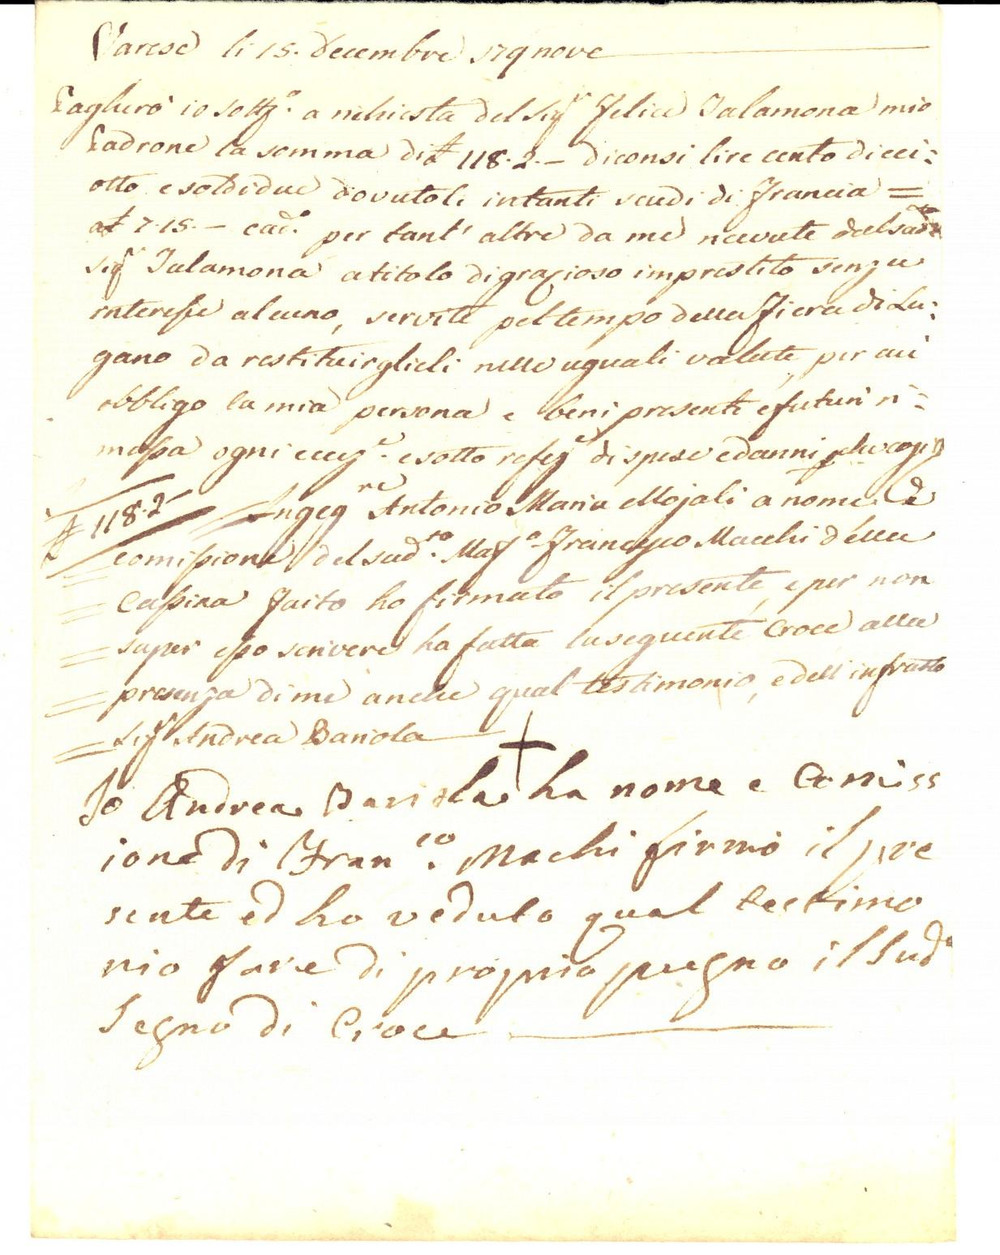 Varese li 15. Decembre 179nove
Pagherò io sottᵒ. a richiesta del Sigʳ Felice Talamona mio
Padrone la somma di £ 118.2.- diconsi lire cento dieci=
otto e soldi due dovutoli in tanti scudi di Francia =
a £ 7.15.- cadᵒ. per tant' altre da me ricevute dal sudᵒ
Sigʳ Talamona a titolo di grazioso imprestito senza
interesse alcuno, servite pel tempo della Fiera di Lu=
gano da restituirglieli nelle uguali valute, per cui
obbligo la mia persona e beni presenti e futuri ri=
messa ogni eccezᵉ. e sotto refezᵉ di spese e danni
£ 118.2 Ingegʳᵉ Antonio Maria Mojali a nome, e
comissione del sudᵗᵒ. Francesco Macchi della
Cassina fatto ho firmato il presente, e per non
saper esso scrivere ha fatta la seguente Croce alla
presenza di me anche qual testimonio, e dell'infratto
Sigʳ Andrea Bariola
Io Andrea Bariola ha nome e Comiss
ione di Franᶜᵒ. Machi firmo il pre
sente ed ho veduto qual testimo
nio fare di proprio pugno il Sudᵒ
Segno di Croce